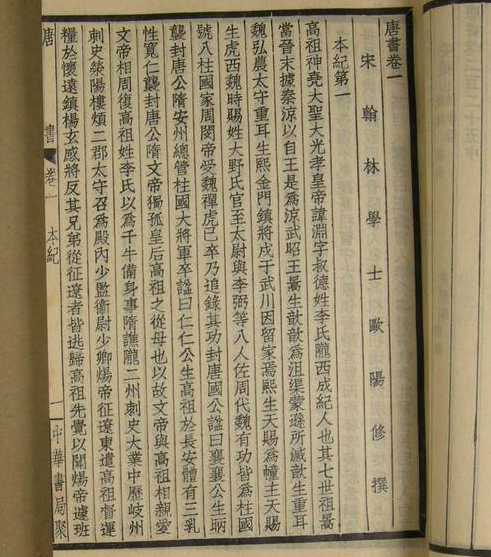 唐書卷一
宋翰林學士歐陽修撰
本紀第一
高祖神堯大聖大光孝皇帝諱淵字叔德姓李氏隴西成紀人也其七世祖暠
當晉末據秦涼以自王是爲涼武昭王暠生歆歆爲沮渠蒙遜所滅歆生重耳
魏弘農太守重耳生熙金門鎮將戍于武川因留家焉熙生天賜爲幢主天賜
生虎西魏時賜姓大野氏官至太尉與李弼等八人佐周代魏有功皆爲柱國
號八柱國家周閔帝受魏禪虎已卒乃追錄其功封唐國公諡曰襄襄公生昞
襲封唐公隋安州總管柱國大將軍卒諡曰仁仁公生高祖於長安體有三乳
性寬仁襲封唐公隋文帝獨孤皇后高祖之從母也以故文帝與高祖相親愛
文帝相周復高祖姓李氏以爲千牛備身事隋譙隴二州刺史大業中歷岐州
刺史滎陽樓煩二郡太守召爲殿內少監衛尉少卿煬帝征遼東遣高祖督運
糧於懷遠鎮楊玄感將反其兄弟從征遼者皆逃歸高祖先覺以聞煬帝遽班
唐書 卷一 本紀 一 中華書局聚